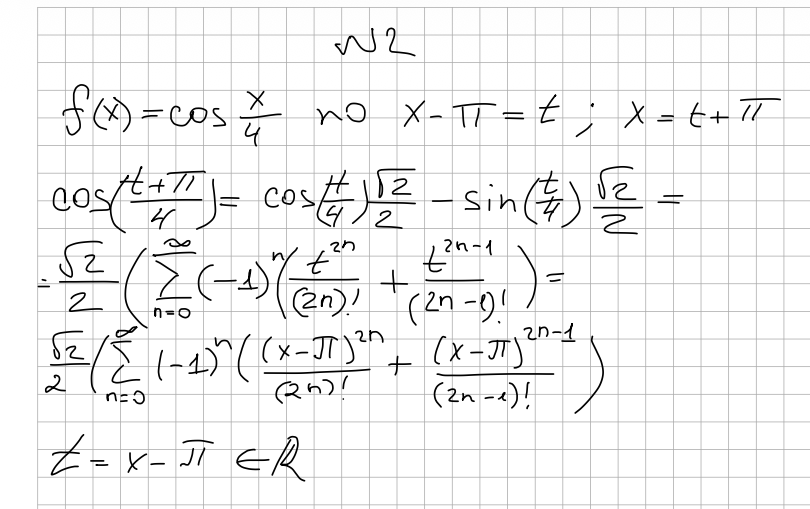 №2
f(x) = cos x/4 по x - π = t ; x = t + π
cos((t+π)/4) = cos(t/4) √2/2 - sin(t/4) √2/2 =
= √2/2 (∑_{n=0}^{∞} (-1)^n (t^{2n}/(2n)! + t^{2n-1}/(2n-1)!) =
√2/2 (∑_{n=0}^{∞} (-1)^n ((x-π)^{2n}/(2n)! + (x-π)^{2n-1}/(2n-1)!)
t = x - π ∈ ℝ